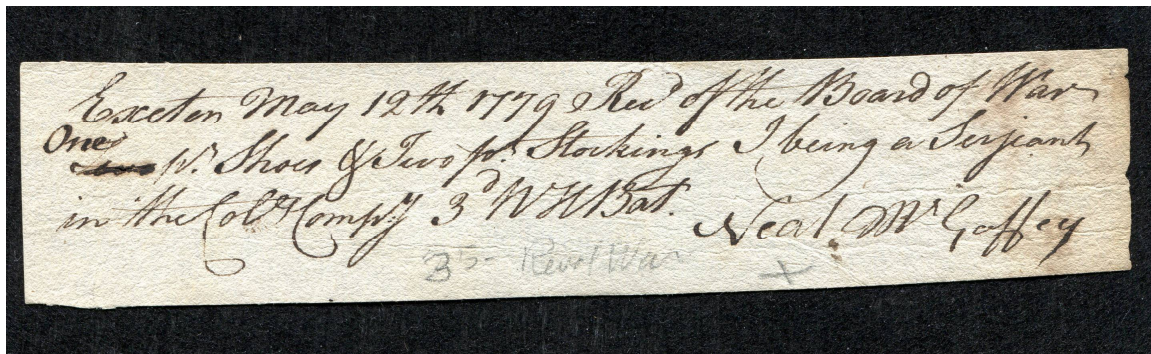 Exeter May 12th 1779 Recd of the Board of War
One pr. Shoes & Two pr. Stockings I being a Serjeant
in the Colos Compy 3d N H Bat.
Neal McGaffey
3 5- Revol War X